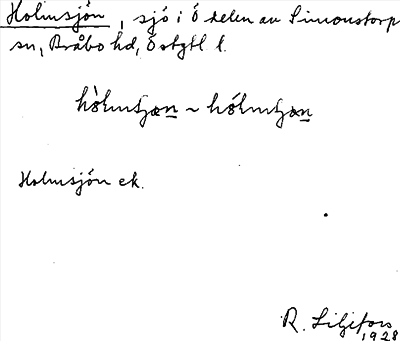 Holmsjön, sjö i Ö delen av Simonstorp
sn, Bråbo hd, Östgtl l.
Holmsjön ek.
R. Liljefors
1928